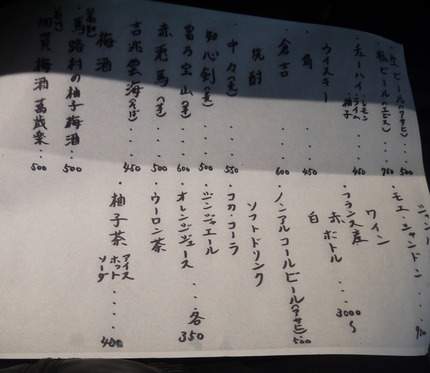 生ビール(アサヒ)・・500
瓶ビール(エビス)・・750
チューハイ レモン ライム 柚子・・・450
ウイスキー
角・・・・450
倉吉・・・・600
焼酎
中々(麦)・・・550
知心剣(麦)・・・500
富乃宝山(芋)・・・600
赤兎馬(芋)・・・500
吉兆雲海(そば)・・・450
梅酒
馬路村の柚子梅酒・・500
加賀梅酒萬歳楽・・500
モエ・シャンドン・・
ワイン
フランス産
赤ボトル・・・3000〜
白
ノンアルコールビール(アサヒ) 500
ソフトドリンク
・コカ・コーラ
・ジンジャエール
・オレンジジュース・・各350
・ウーロン茶
・柚子茶 アイス ホット ソーダ・・・・400